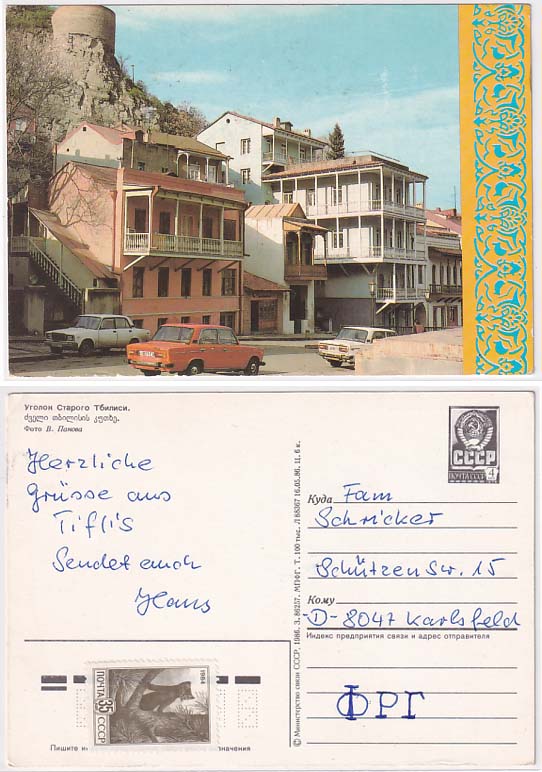 Уголок Старого Тбилиси.
ძველი თბილისის კუთხე.
Фото В. Панова
Herzliche
Grüsse aus
Tiflis
Sendet euch
Hans
© Министерство связи СССР, 1986. З. 86257. МПФГ. Т. 100 тыс. Л 88367 16.05.86. Ц. 6 к.
СССР
ПОЧТА СССР 4
Куда Fam
Schricker
Schützenstr. 15
Кому
D-8047 Karlsfeld
Индекс предприятия связи и адрес отправителя
ФРГ
1984
ПОЧТА 35 СССР
Пишите
значения